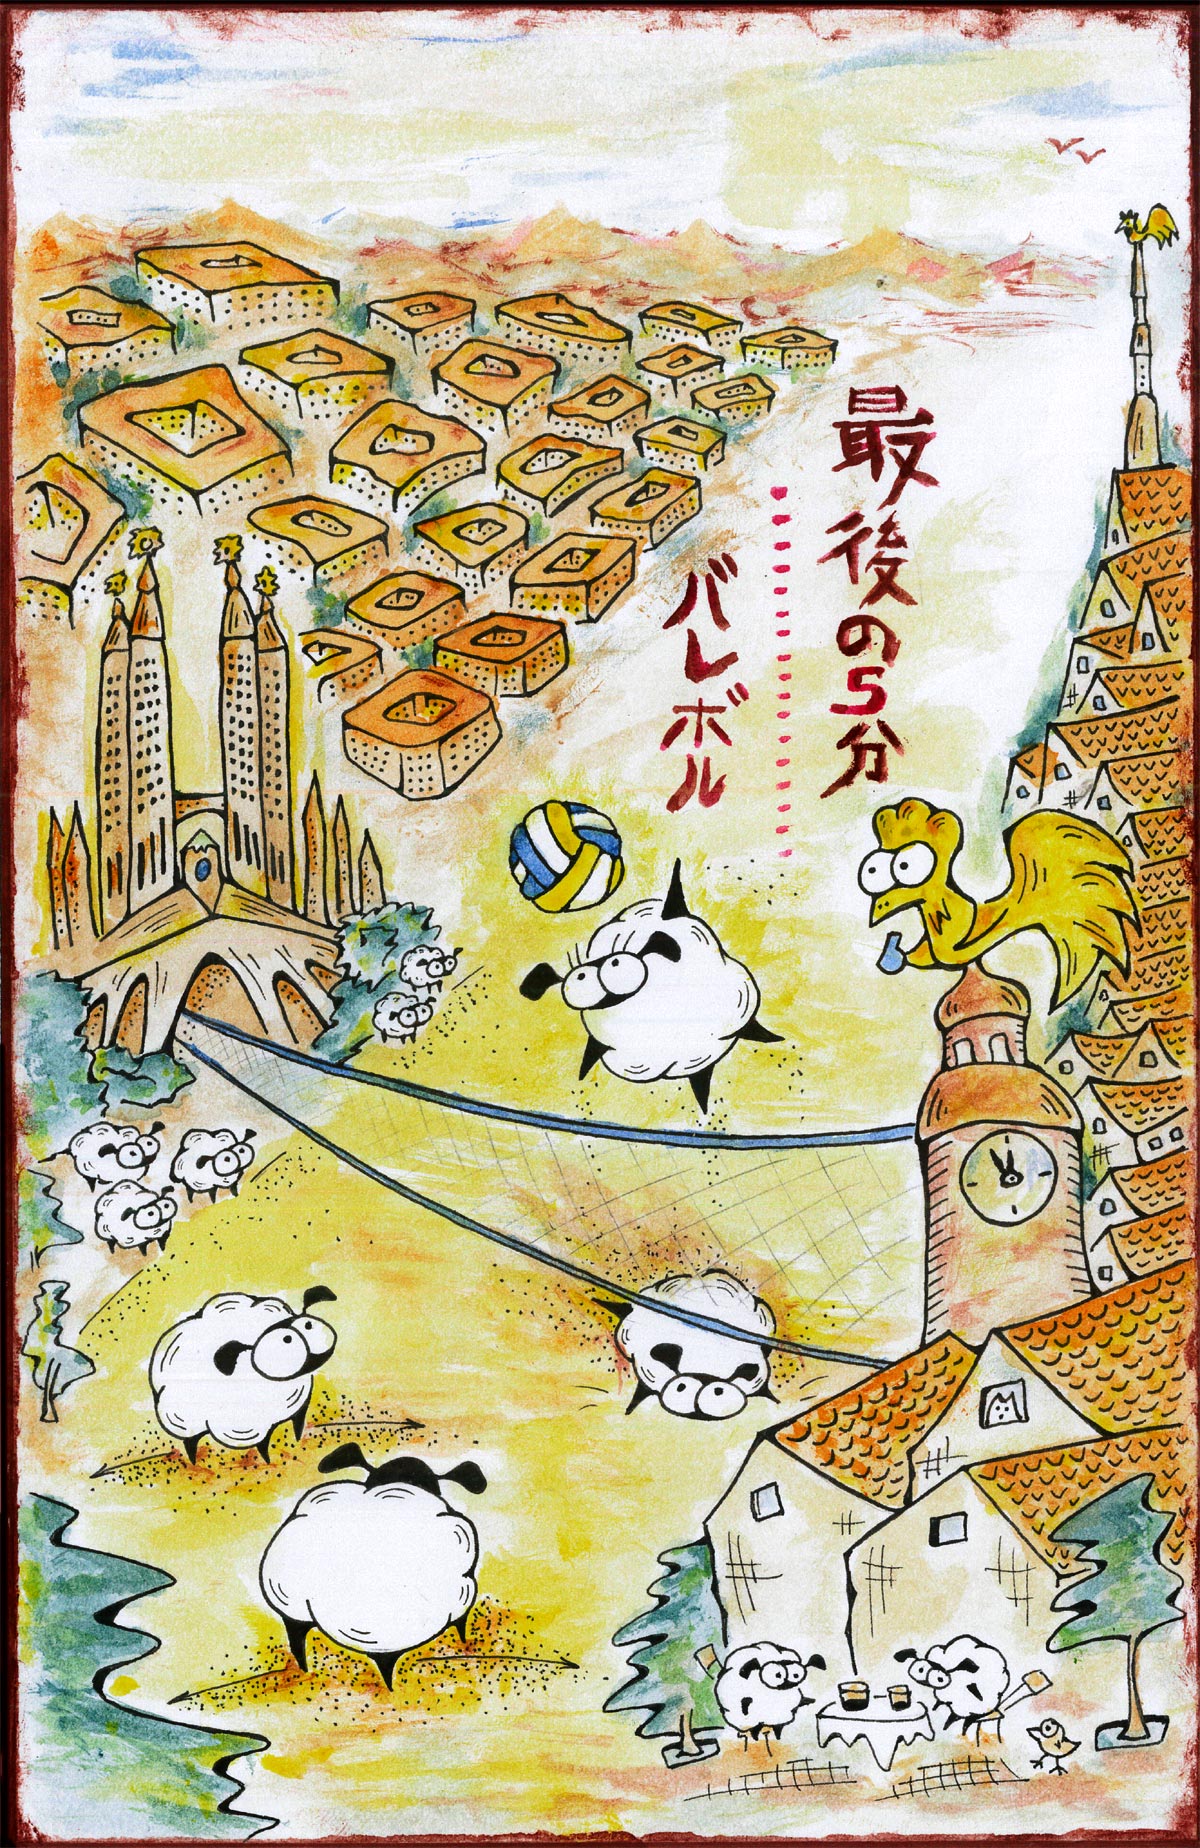 最後の5分
バレボル